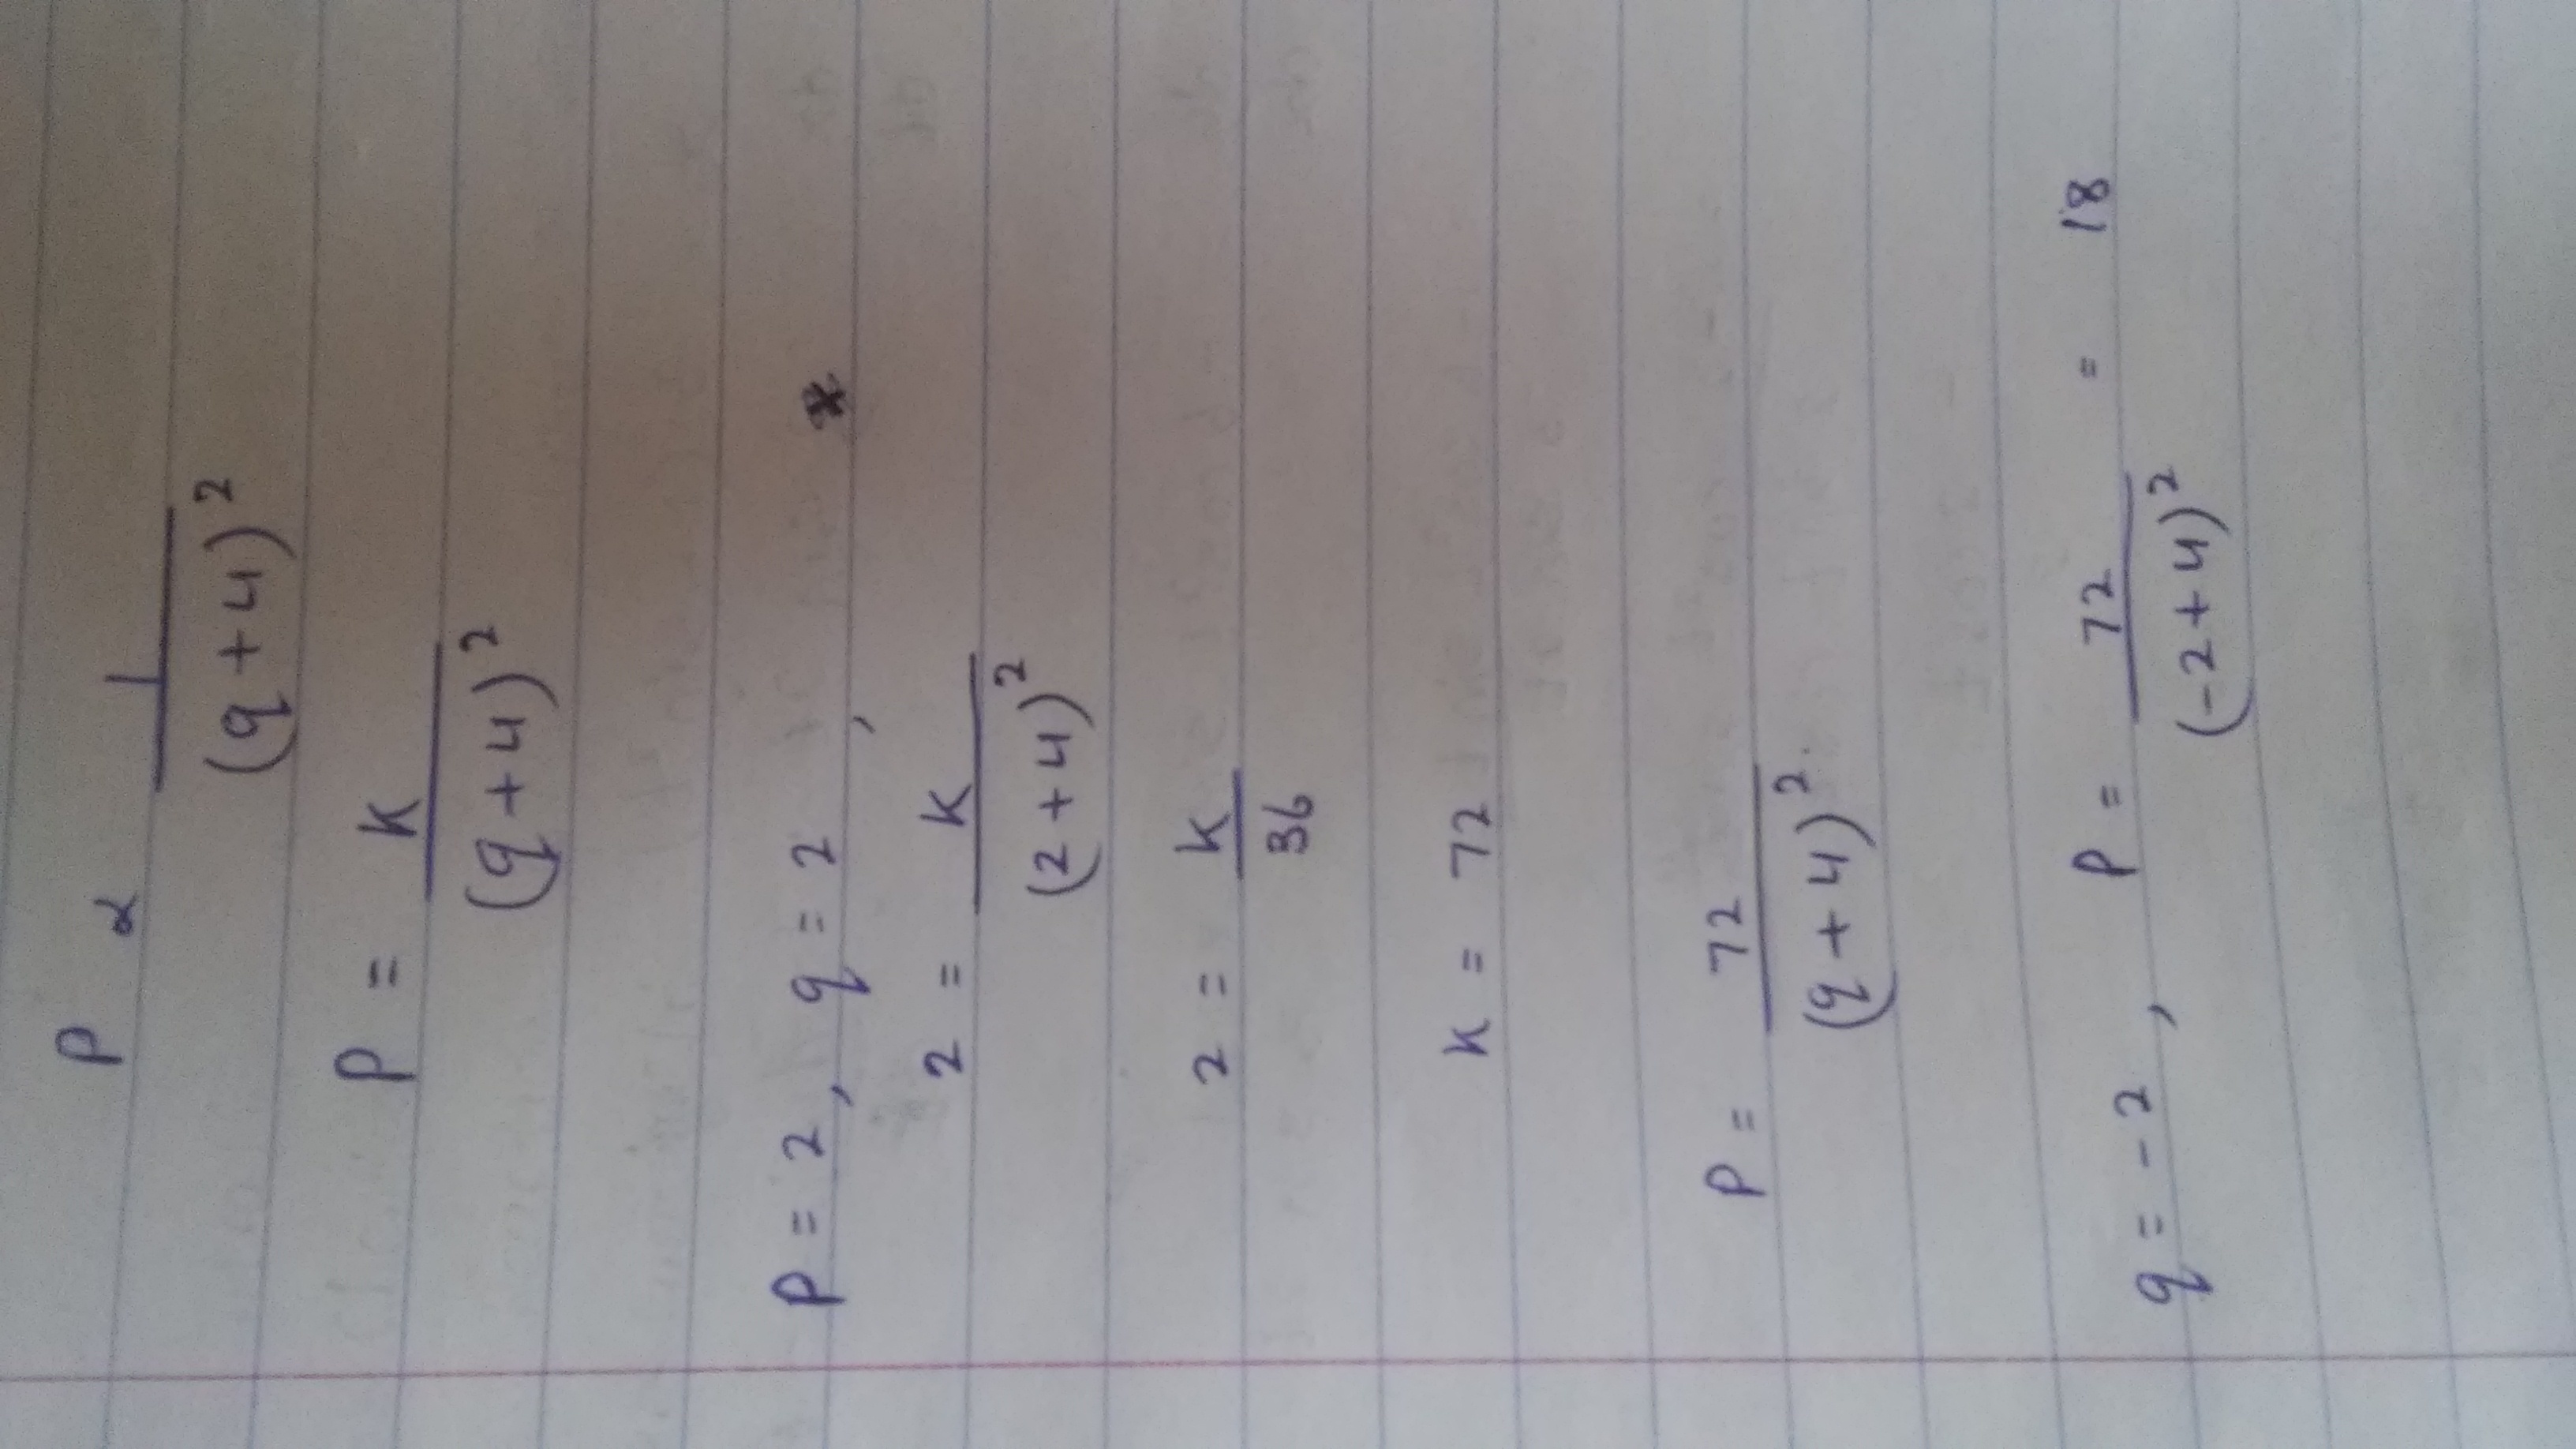 P α 1/(q+4)²
P = K/(q+4)²
P = 2, q = 2,
2 = K/(2+4)²
2 = K/36
K = 72
P = 72/(q+4)²
q = -2, P = 72/(-2+4)² = 18